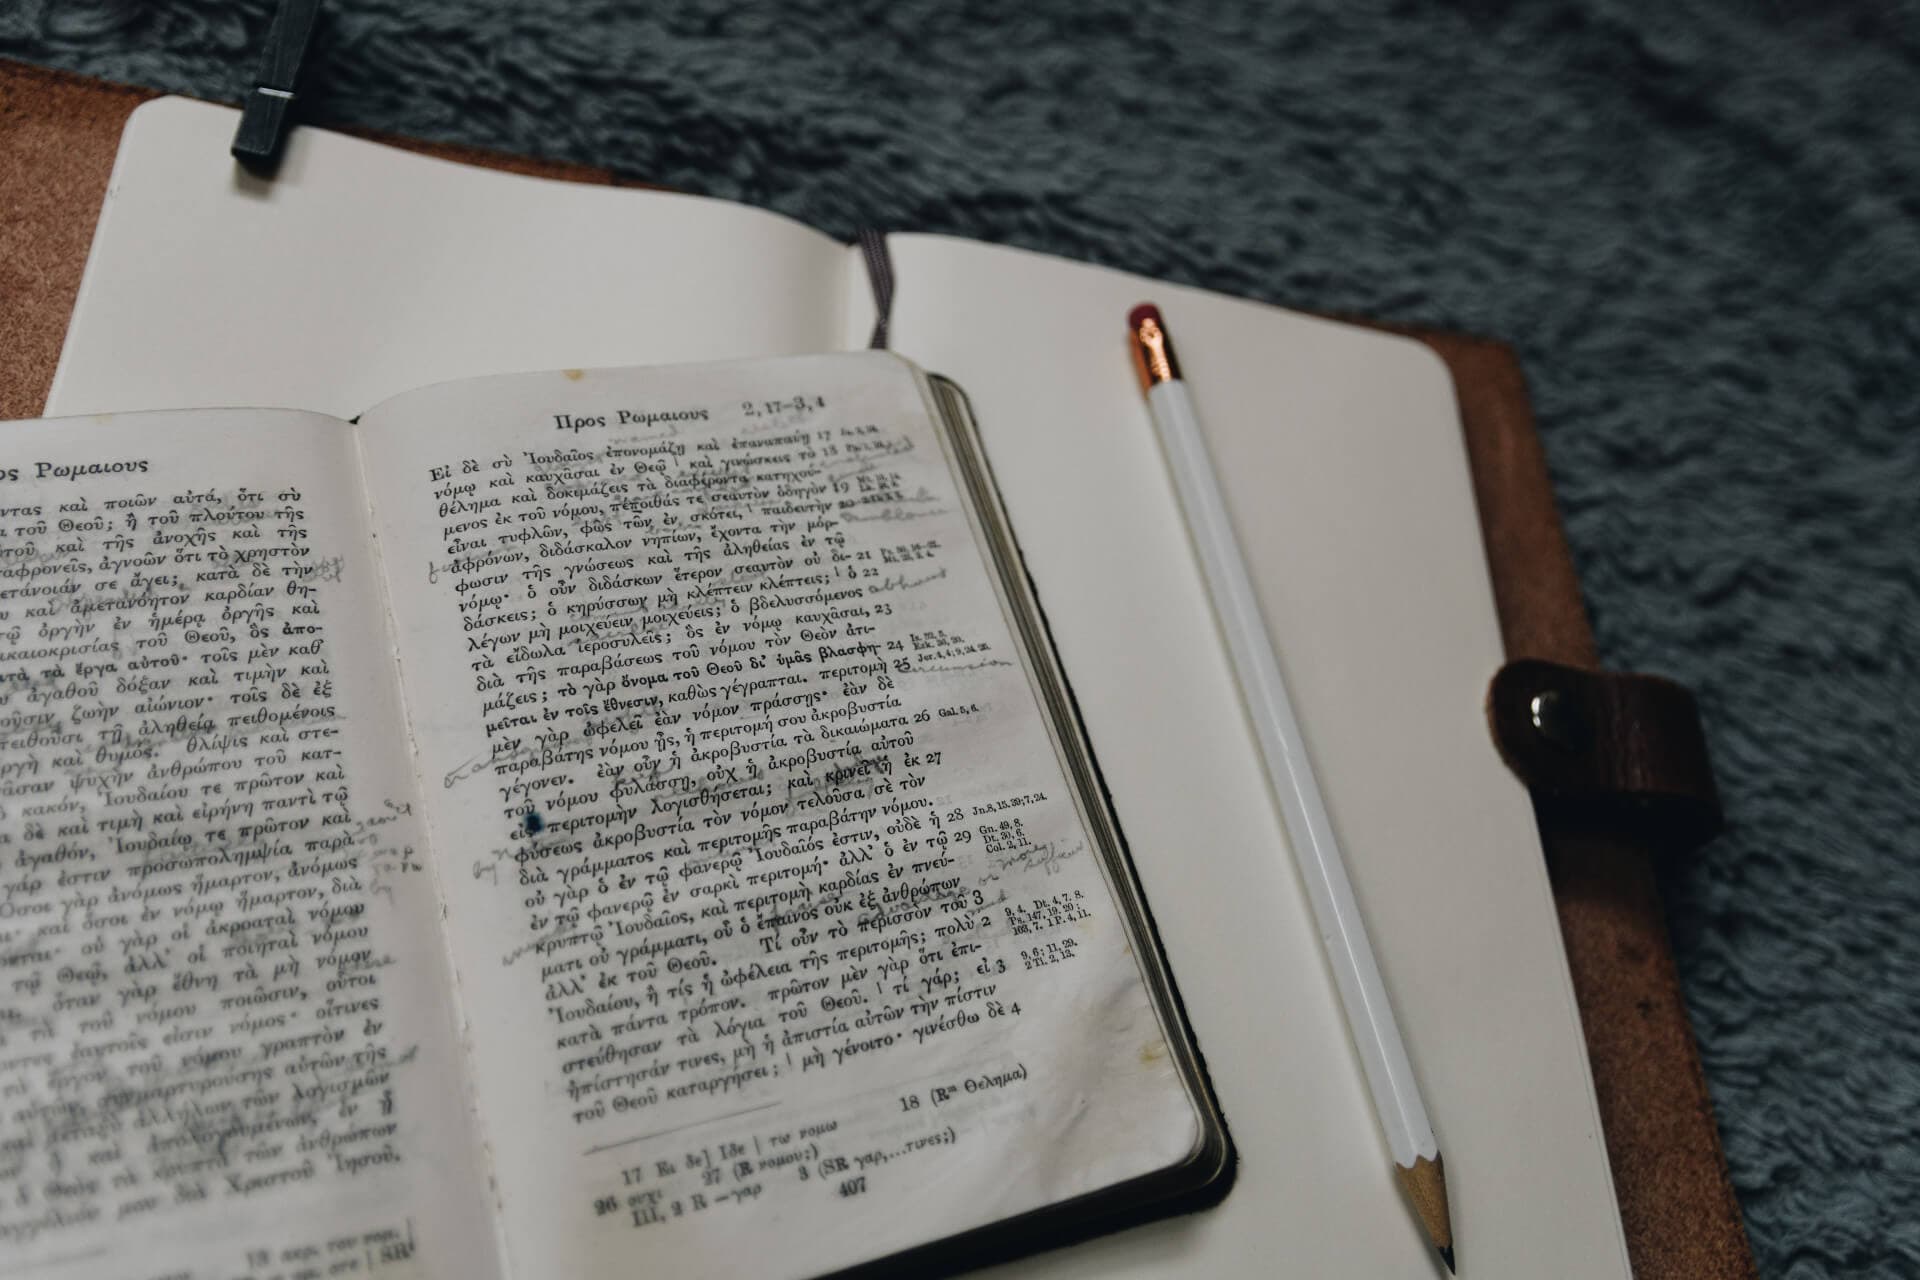 ος Ρωμαιους
ντας καὶ ποιῶν αὐτά, ὅτι σὺ
τοῦ Θεοῦ; ἢ τοῦ πλούτου τῆς
καὶ τῆς ἀνοχῆς καὶ τῆς
αφρονεῖς, ἀγνοῶν ὅτι τὸ χρηστὸν
ετάνοιάν σε ἄγει; κατὰ δὲ τὴν
καὶ ἀμετανόητον καρδίαν θη-
ὀργὴν ἐν ἡμέρᾳ ὀργῆς καὶ
ικαιοκρισίας τοῦ Θεοῦ, ὃς ἀπο-
τὰ ἔργα αὐτοῦ· τοῖς μὲν καθ’
ἀγαθοῦ δόξαν καὶ τιμὴν καὶ
οῦσιν, ζωὴν αἰώνιον· τοῖς δὲ ἐξ
τῇ ἀληθείᾳ πειθομένοις
ργὴ καὶ θυμός. θλῖψις καὶ στε-
ᾶσαν ψυχὴν ἀνθρώπου τοῦ κατ-
κακόν, Ἰουδαίου τε πρῶτον καὶ
δὲ καὶ τιμὴ καὶ εἰρήνη παντὶ τῷ
ἀγαθόν, Ἰουδαίῳ τε πρῶτον καὶ
γάρ ἐστιν προσωπολημψία παρὰ
Ὅσοι γὰρ ἀνόμως ἥμαρτον, ἀνόμως
καὶ ὅσοι ἐν νόμῳ ἥμαρτον, διὰ
οὐ γὰρ οἱ ἀκροαταὶ νόμου
τῷ Θεῷ, ἀλλ’ οἱ ποιηταὶ νόμου
ὅταν γὰρ ἔθνη τὰ μὴ νόμον
τὰ τοῦ νόμου ποιῶσιν, οὗτοι
ἑαυτοῖς εἰσιν νόμος· οἵτινες
τὸ ἔργον τοῦ νόμου γραπτὸν ἐν
αὐτῶν, συνμαρτυρούσης αὐτῶν τῆς
καὶ μεταξὺ ἀλλήλων τῶν λογισμῶν
ἢ καὶ ἀπολογουμένων, ἐν ᾗ
ὁ Θεὸς τὰ κρυπτὰ τῶν ἀνθρώπων
μου διὰ Χριστοῦ Ἰησοῦ.
Προς Ρωμαιους 2, 17–3, 4
Εἰ δὲ σὺ Ἰουδαῖος ἐπονομάζῃ καὶ ἐπαναπαύῃ 17
νόμῳ καὶ καυχᾶσαι ἐν Θεῷ | καὶ γινώσκεις τὸ 18
θέλημα καὶ δοκιμάζεις τὰ διαφέροντα κατηχού-
μενος ἐκ τοῦ νόμου, πέποιθάς τε σεαυτὸν ὁδηγὸν 19
εἶναι τυφλῶν, φῶς τῶν ἐν σκότει, | παιδευτὴν 20
ἀφρόνων, διδάσκαλον νηπίων, ἔχοντα τὴν μόρ-
φωσιν τῆς γνώσεως καὶ τῆς ἀληθείας ἐν τῷ
νόμῳ· ὁ οὖν διδάσκων ἕτερον σεαυτὸν οὐ δι- 21
δάσκεις; ὁ κηρύσσων μὴ κλέπτειν κλέπτεις; | ὁ 22
λέγων μὴ μοιχεύειν μοιχεύεις; ὁ βδελυσσόμενος abhours
τὰ εἴδωλα ἱεροσυλεῖς; ὃς ἐν νόμῳ καυχᾶσαι, 23
διὰ τῆς παραβάσεως τοῦ νόμου τὸν Θεὸν ἀτι-
μάζεις; τὸ γὰρ ὄνομα τοῦ Θεοῦ δι’ ὑμᾶς βλασφη- 24 Is. 52, 5. Ezk. 36, 20.
μεῖται ἐν τοῖς ἔθνεσιν, καθὼς γέγραπται. περιτομὴ 25 Jer. 4, 4; 9, 24. 25. circumcision
μὲν γὰρ ὠφελεῖ ἐὰν νόμον πράσσῃς· ἐὰν δὲ
παραβάτης νόμου ᾖς, ἡ περιτομή σου ἀκροβυστία
γέγονεν. ἐὰν οὖν ἡ ἀκροβυστία τὰ δικαιώματα 26 Gal. 5, 6.
τοῦ νόμου φυλάσσῃ, οὐχ ἡ ἀκροβυστία αὐτοῦ
εἰς περιτομὴν λογισθήσεται; καὶ κρινεῖ ἡ ἐκ 27
φύσεως ἀκροβυστία τὸν νόμον τελοῦσα σὲ τὸν
διὰ γράμματος καὶ περιτομῆς παραβάτην νόμου.
οὐ γὰρ ὁ ἐν τῷ φανερῷ Ἰουδαῖός ἐστιν, οὐδὲ ἡ 28 Jn. 8, 15. 39; 7, 24.
ἐν τῷ φανερῷ ἐν σαρκὶ περιτομή· ἀλλ’ ὁ ἐν τῷ 29 Gn. 49, 8. Dt. 30, 6. Col. 2, 11.
κρυπτῷ Ἰουδαῖος, καὶ περιτομὴ καρδίας ἐν πνεύ-
ματι οὐ γράμματι, οὗ ὁ ἔπαινος οὐκ ἐξ ἀνθρώπων
ἀλλ’ ἐκ τοῦ Θεοῦ. Τί οὖν τὸ περισσὸν τοῦ 3
Ἰουδαίου, ἢ τίς ἡ ὠφέλεια τῆς περιτομῆς; πολὺ 2 9, 4. Dt. 4, 7. 8. Ps. 147, 19. 20; 103, 7. 1 P. 4, 11.
κατὰ πάντα τρόπον. πρῶτον μὲν γὰρ ὅτι ἐπι-
στεύθησαν τὰ λόγια τοῦ Θεοῦ. | τί γάρ; εἰ 3 9, 6; 11, 29. 2 Ti. 2, 13.
ἠπίστησάν τινες, μὴ ἡ ἀπιστία αὐτῶν τὴν πίστιν
τοῦ Θεοῦ καταργήσει; | μὴ γένοιτο· γινέσθω δὲ 4
17 Ει δε] Ιδε | τω νομω 18 (Rᵐ Θελημα)
26 ουχι 27 (R νομου;)
III, 2 R —γαρ 3 (SR γαρ,…τινες;)
407